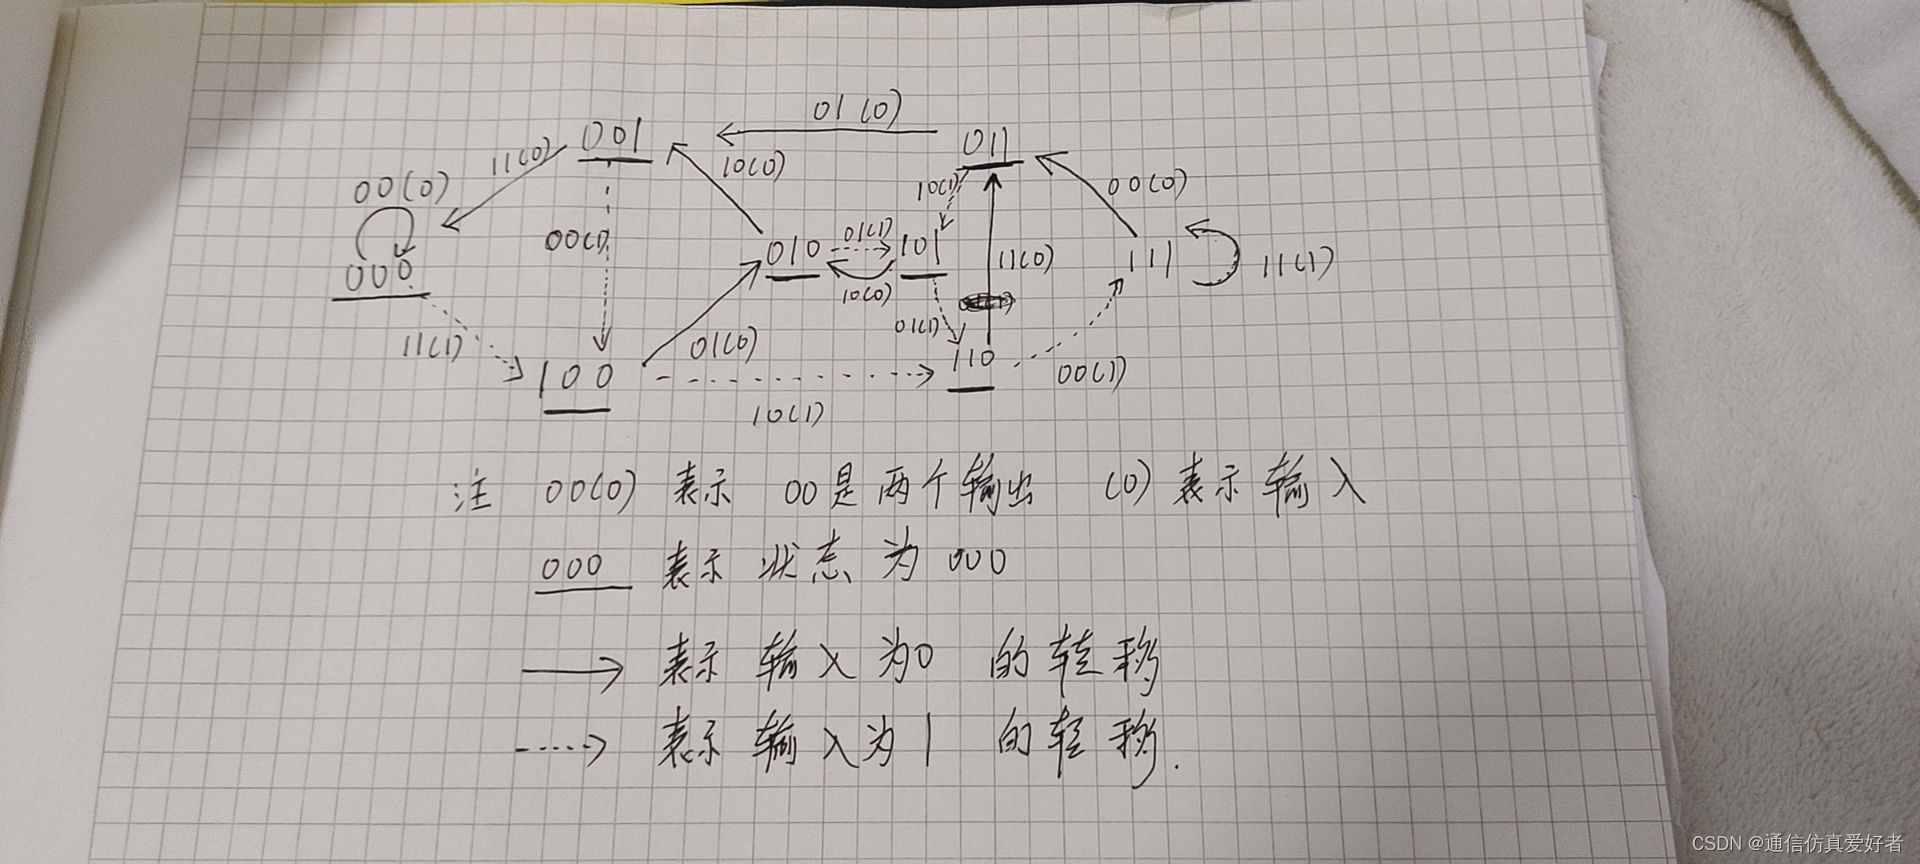 01(0)
001
011
11(0)
10(0)
10(1)
00(0)
00(0)
00(1)
010
01(1)
101
11(0)
111
11(1)
000
10(0)
01(1)
11(1)
01(0)
110
100
00(1)
10(1)
注 00(0) 表示 00是两个输出 (0)表示输入
000 表示状态为000
表示输入为0 的转移
表示输入为1 的转移.
CSDN @通信仿真爱好者